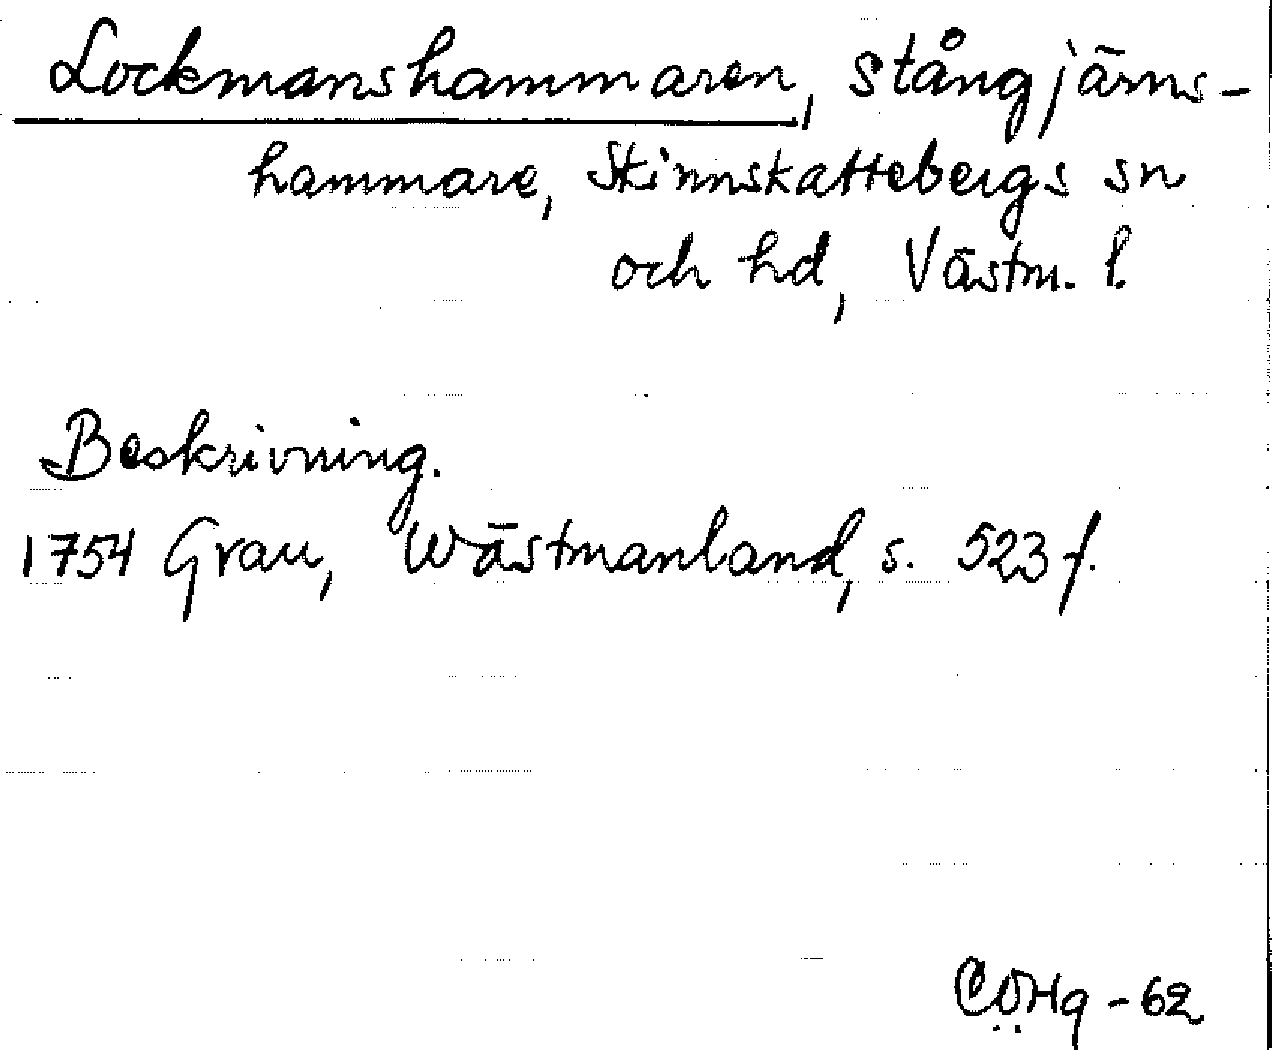 Lockmanshammaren, stångjärns-
hammare, Skinnskattebergs sn
och hd, Västm. l.
Beskrivning.
1754 Grau, Wästmanland, s. 523 f.
CÖHg - 62